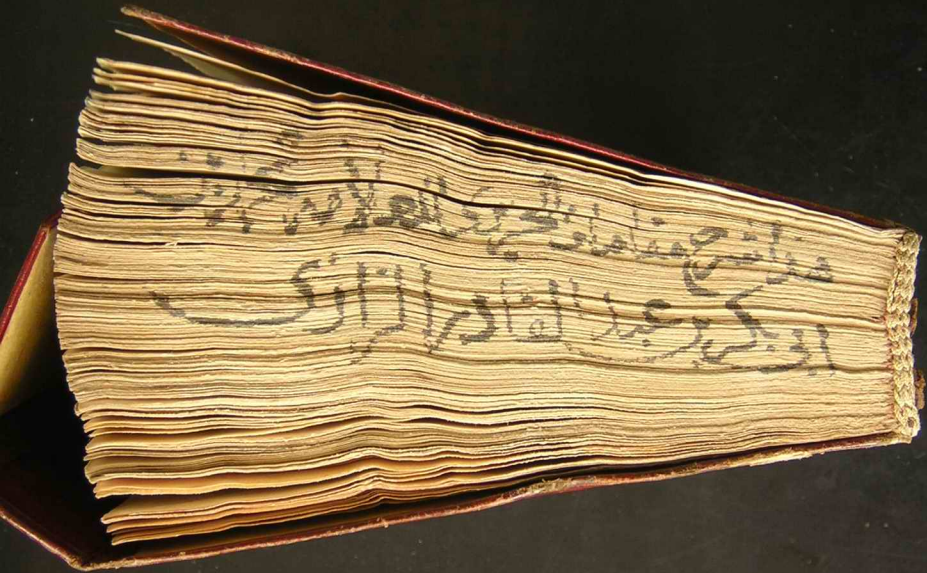 هذا شرح مقامات الحريري للعلامة محمد بن
ابي بكر بن عبد القادر الرازي